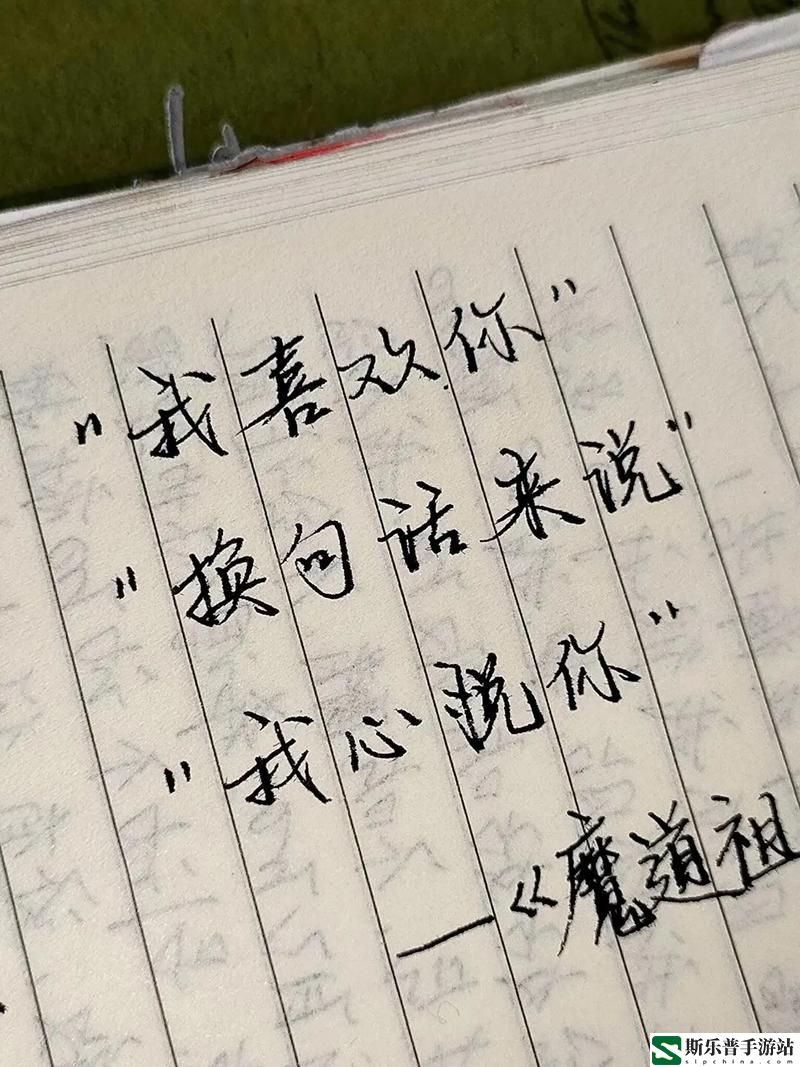 "我喜欢你"
"换句话来说"
"我心悦你"
——《魔道祖
斯乐普手游站
slpchina.com